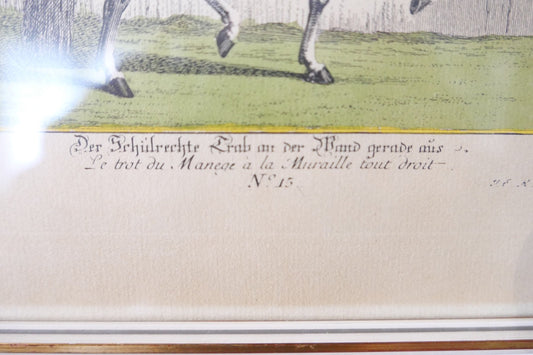 Der Schulrechte Trab an der Wand gerade aus.
Le trot du Manege à la Muraille tout droit
No. 15